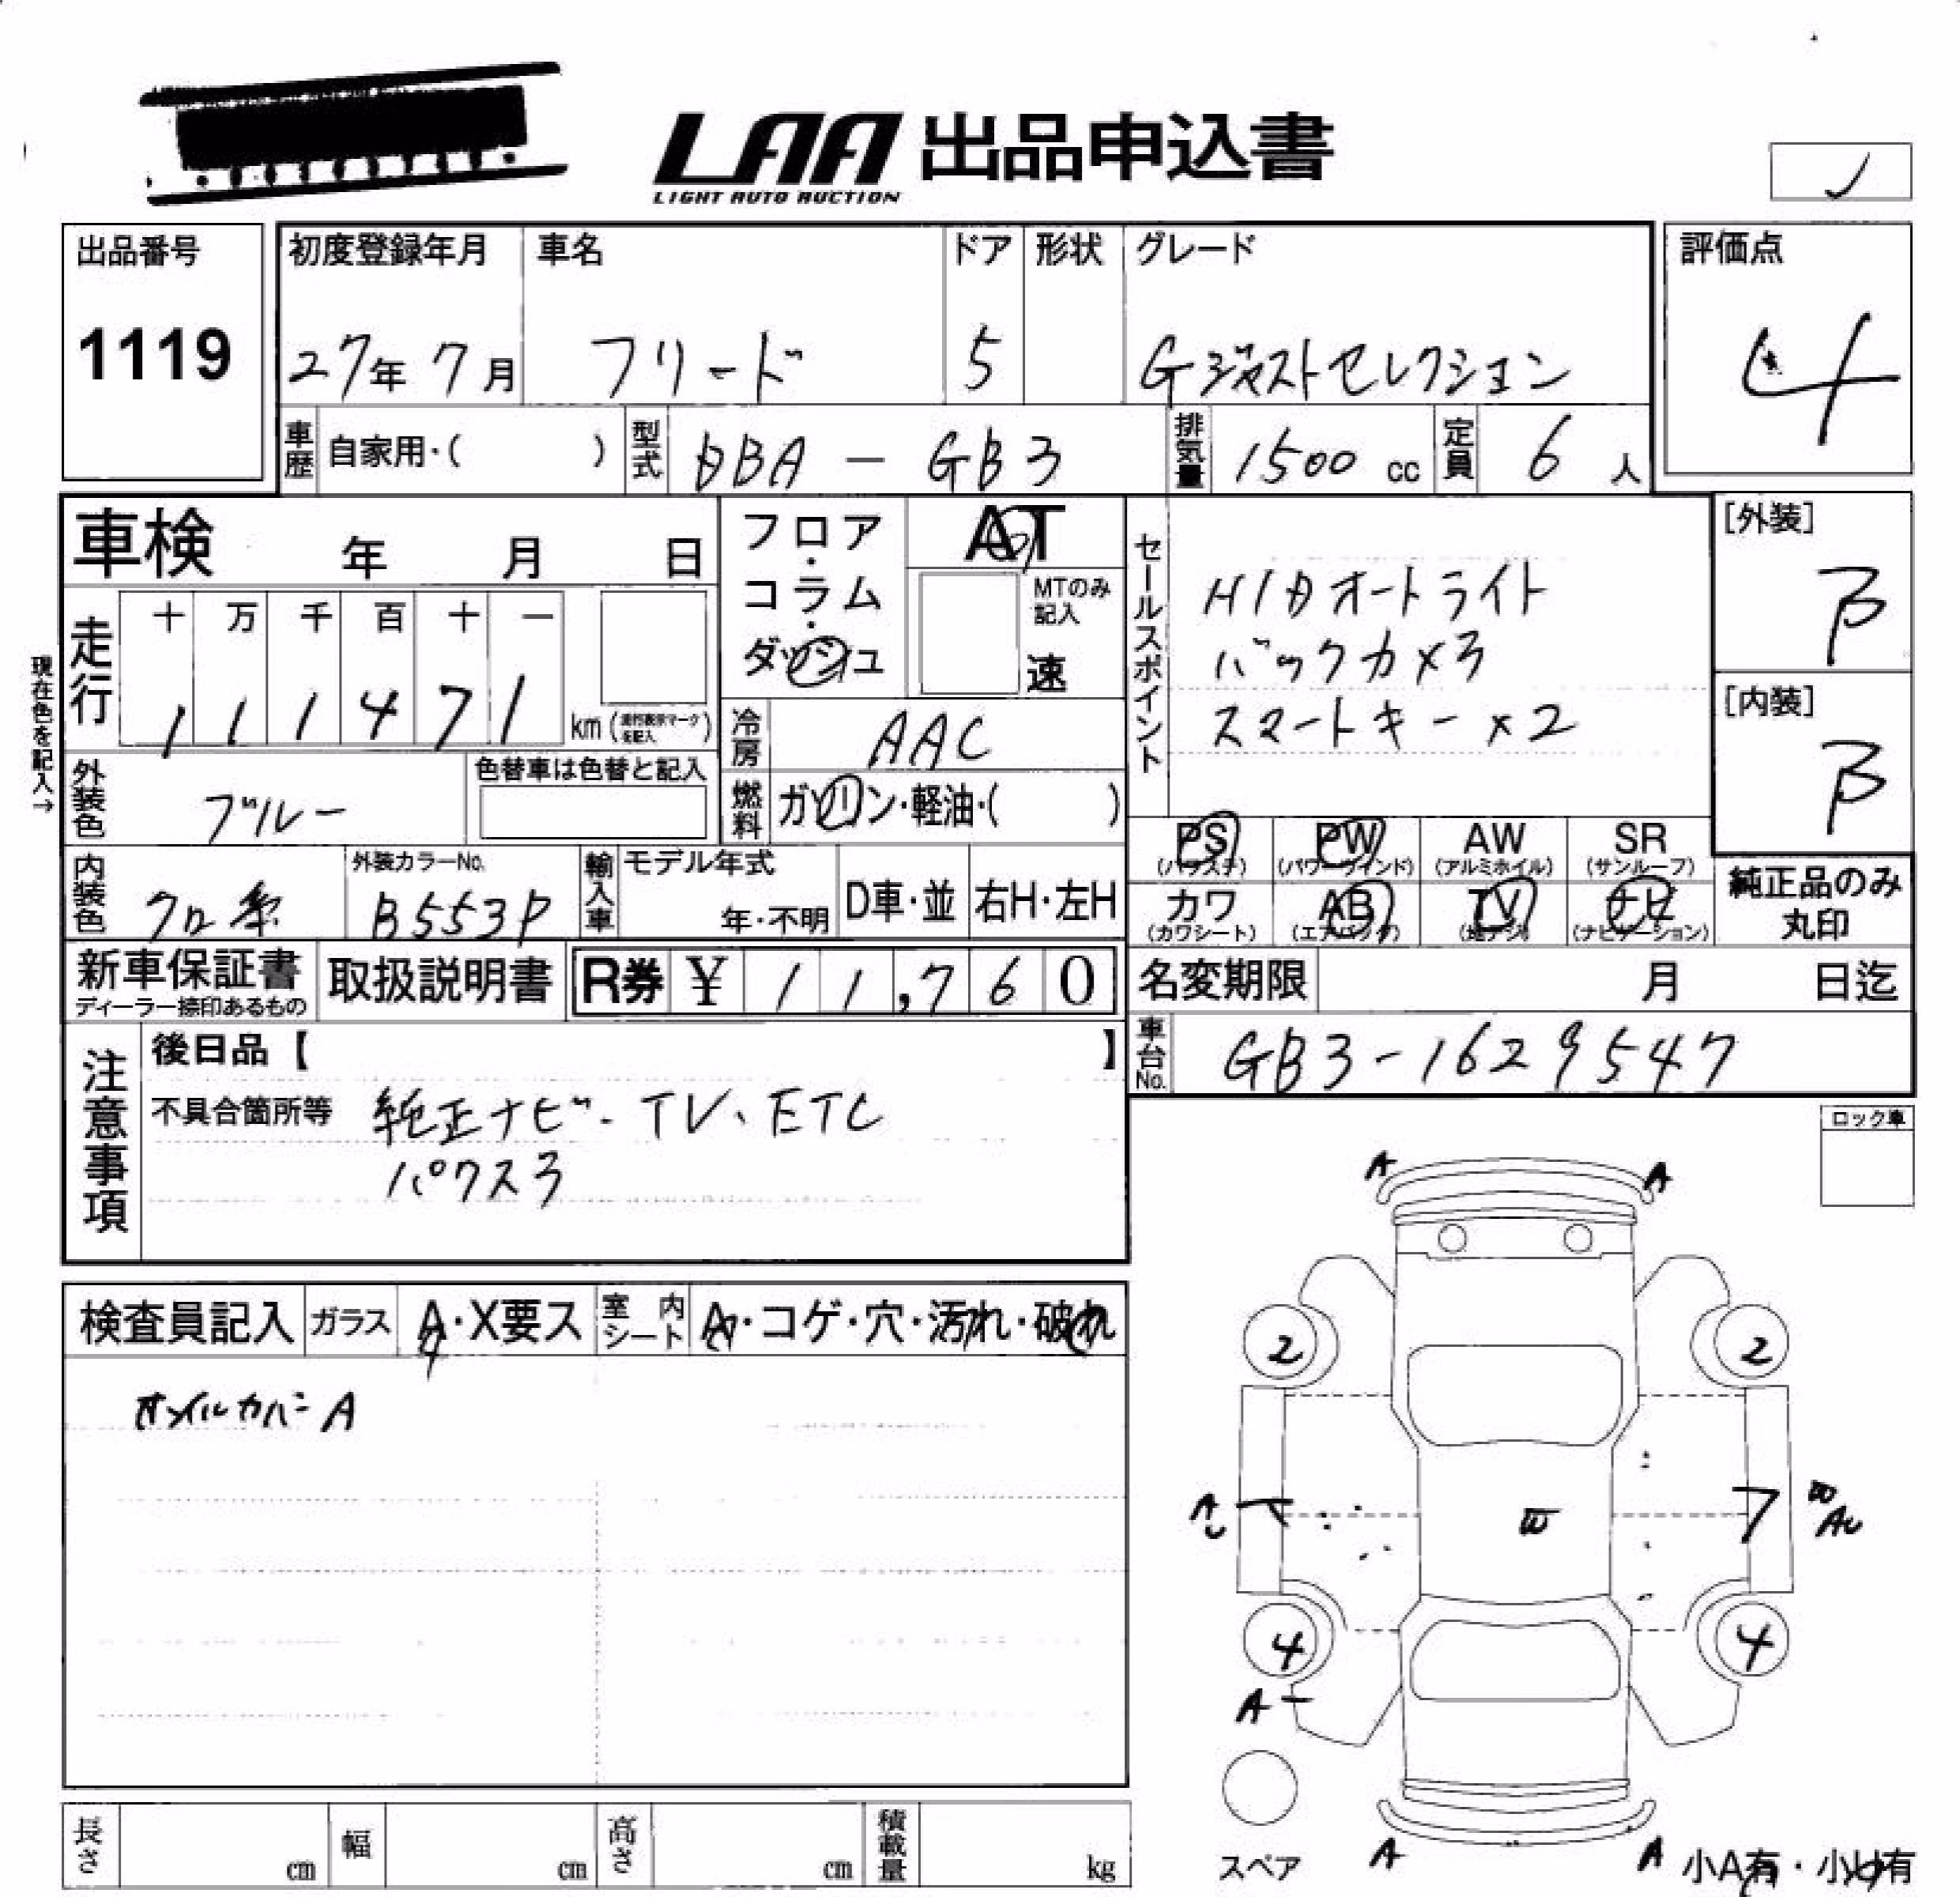 LAA 出品申込書
LIGHT AUTO AUCTION
出品番号
1119
初度登録年月
27年 7月
車名
フリード
ドア
5
形状
グレード
Gジャストセレクション
評価点
4
車歴 自家用・( )
型式 DBA - GB3
排気量 1500 cc
定員 6 人
車検 年 月 日
フロア・コラム・ダッシュ
AT
MTのみ記入
速
セールスポイント
HIDオートライト
バックカメラ
スマートキー×2
[外装]
B
[内装]
B
現在色を記入→
走行
十 万 千 百 十 一
1 1 1 4 7 1
km (走行表示マークを記入)
冷房 AAC
外装色 ブルー
色替車は色替と記入
燃料 ガソリン・軽油・( )
PS (パワステ)
PW (パワーウインド)
AW (アルミホイル)
SR (サンルーフ)
カワ (カワシート)
AB (エアバッグ)
TV (地デジ)
ナビ (ナビゲーション)
純正品のみ丸印
内装色 クロ系
外装カラーNo. B553P
輸入車 モデル年式
年・不明
D車・並
右H・左H
新車保証書
ディーラー捺印あるもの
取扱説明書
R券 ¥ 11,760
名変期限 月 日迄
車台No. GB3-1629547
注意事項
後日品【 】
不具合箇所等 純正ナビ・TV、ETC
パワスラ
ロック車
検査員記入
ガラス A・X要ス
室内シート A・コゲ・穴・汚れ・破れ
オイルカバーA
A A
2 2
A W
U AU
W
4 4
A
A A
スペア
小A有・小U有
長さ cm
幅 cm
高さ cm
積載量 kg